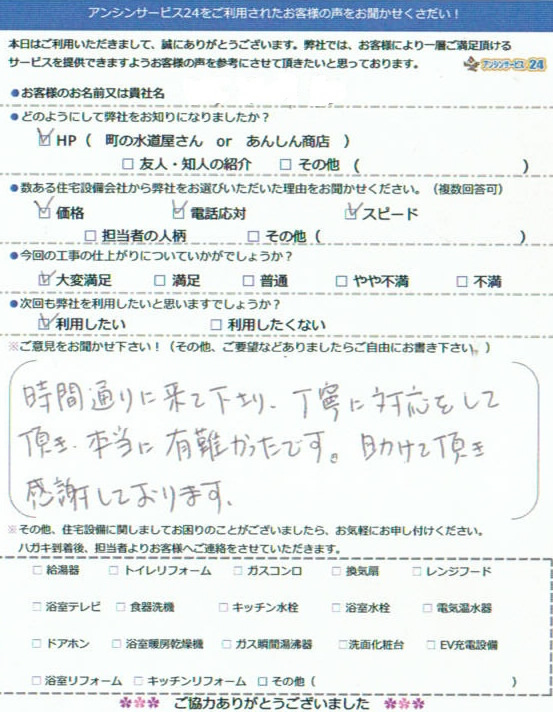 アンシンサービス24をご利用されたお客様の声をお聞かせください！
本日はご利用いただきまして、誠にありがとうございます。弊社では、お客様により一層ご満足頂ける
サービスを提供できますようお客様の声を参考にさせて頂きたいと思っております。 アンシンサービス24
●お客様のお名前又は貴社名
●どのようにして弊社をお知りになりましたか？
☑HP（ 町の水道屋さん or あんしん商店 ）
□友人・知人の紹介 □その他（ ）
●数ある住宅設備会社から弊社をお選びいただいた理由をお聞かせください。（複数回答可）
☑価格 ☑電話応対 ☑スピード
□担当者の人柄 □その他（ ）
●今回の工事の仕上がりについていかがでしょうか？
☑大変満足 □満足 □普通 □やや不満 □不満
●次回も弊社を利用したいと思いますでしょうか？
☑利用したい □利用したくない
※ご意見をお聞かせ下さい！（その他、ご要望などありましたらご自由にお書き下さい。）
時間通りに来て下さり、丁寧に対応をして
頂き、本当に有難かったです。助けて頂き
感謝しております。
※その他、住宅設備に関しましてお困りのことがございましたら、お気軽にお申し付けください。
ハガキ到着後、担当者よりお客様へご連絡をさせていただきます。
□給湯器 □トイレリフォーム □ガスコンロ □換気扇 □レンジフード
□浴室テレビ □食器洗機 □キッチン水栓 □浴室水栓 □電気温水器
□ドアホン □浴室暖房乾燥機 □ガス瞬間湯沸器 □洗面化粧台 □EV充電設備
□浴室リフォーム □キッチンリフォーム □その他（ ）
ご協力ありがとうございました